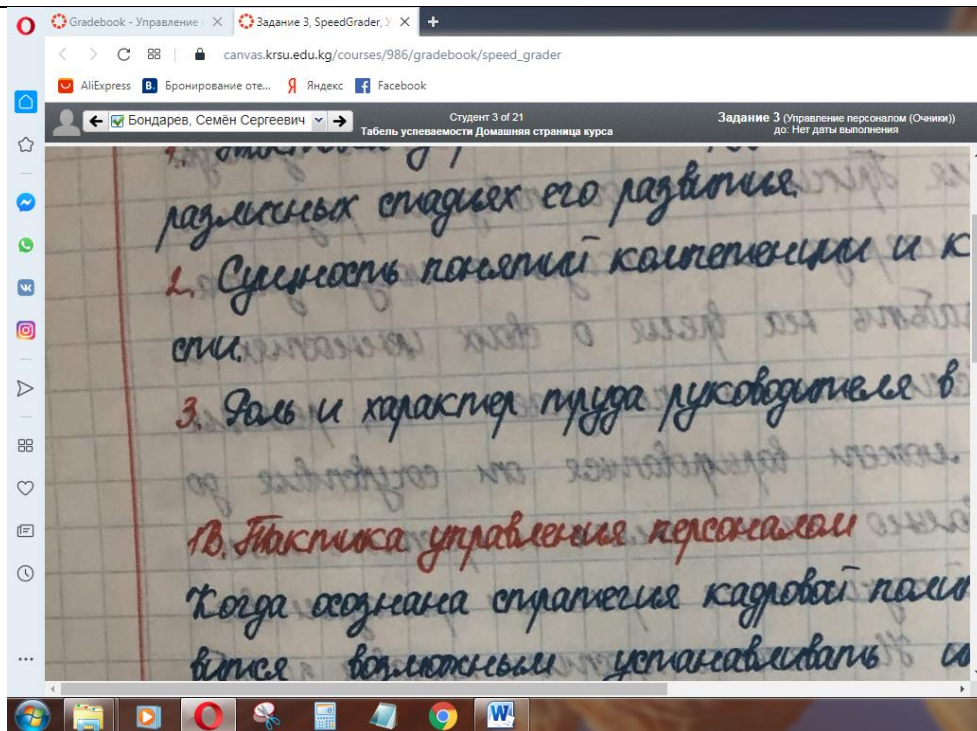 Gradebook - Управление
Задание 3, SpeedGrader, У
canvas.krsu.edu.kg/courses/986/gradebook/speed_grader
AliExpress
B. Бронирование оте...
Яндекс
Facebook
Бондарев, Семён Сергеевич
Студент 3 of 21
Табель успеваемости Домашняя страница курса
Задание 3 (Управление персоналом (Очники))
до: Нет даты выполнения
различных стадиях его развития.
2. Сущность понятий компетенции и к
сти.
3. Роль и характер труда руководителя в
1В. Тактика управления персоналом
Когда осознана стратегия кадровой поли
вится возможным устанавливать